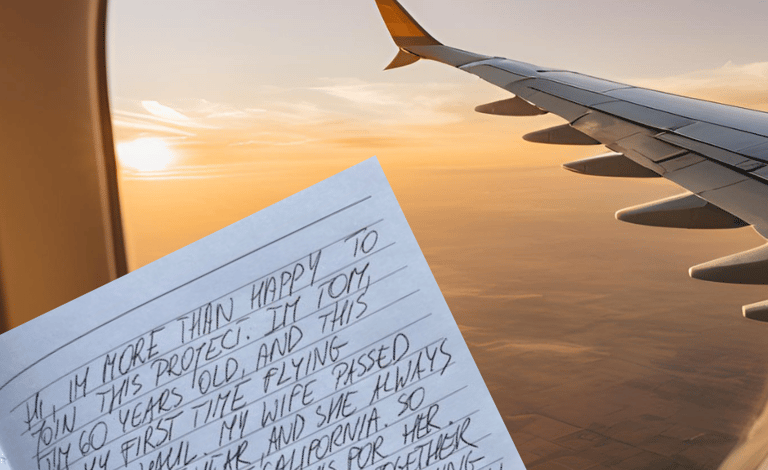 HI, IM MORE THAN HAPPY TO
JOIN THIS PROJECT. IM TOM,
I'M 60 YEARS OLD, AND THIS
MY FIRST TIME FLYING
HAUL. MY WIFE PASSED
YEAR, AND SHE ALWAYS
CALIFORNIA. SO
FOR HER.
TOGETHER